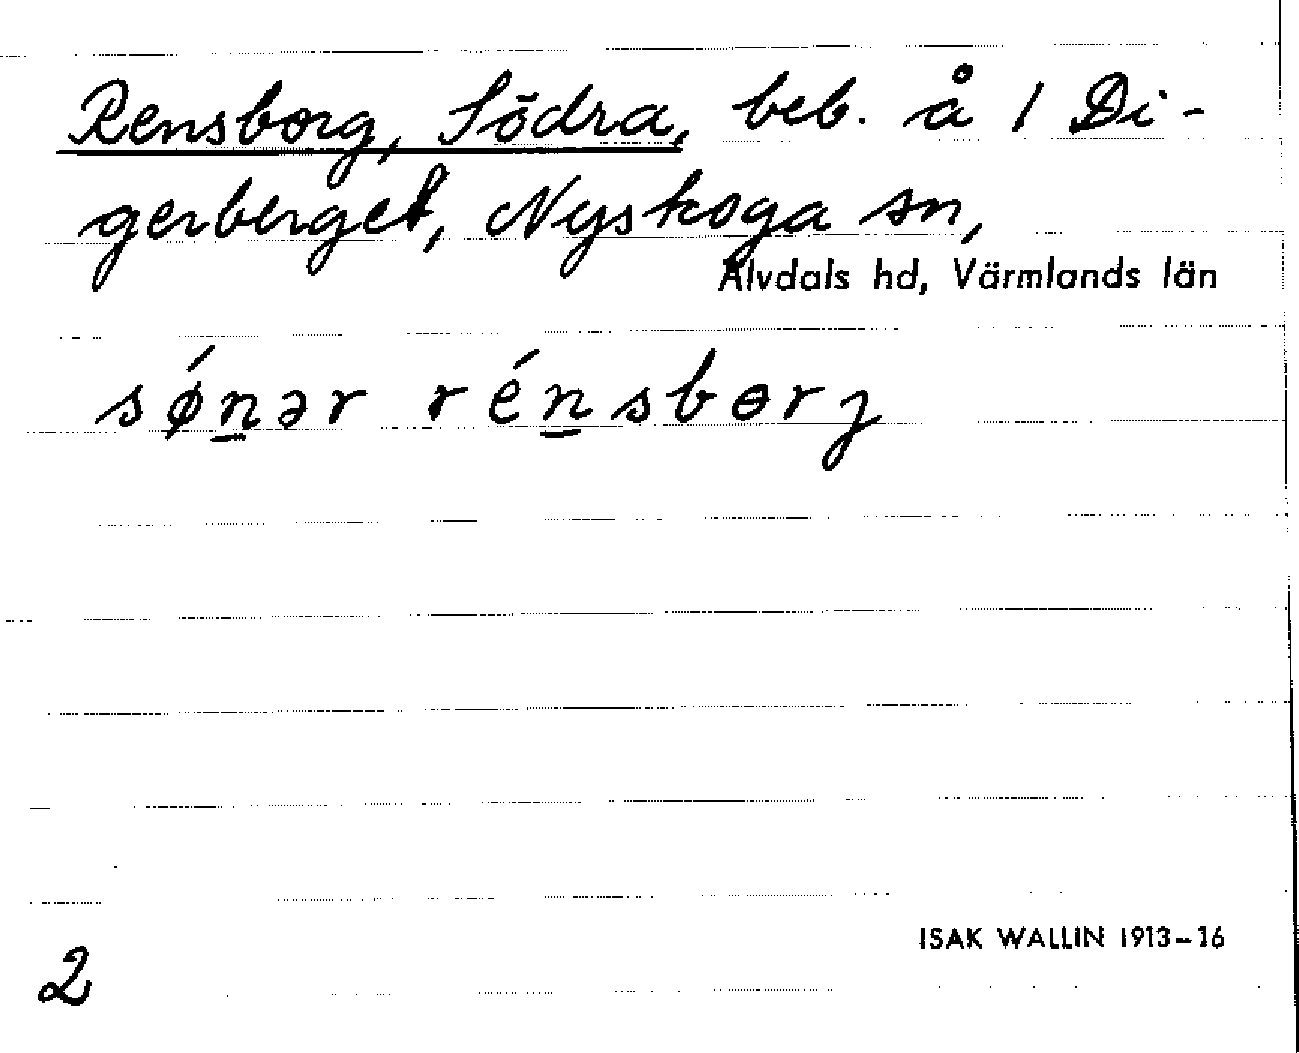 Rensborg, Södra, beb. å 1 Di-
gerberget, Nyskoga sn,
Älvdals hd, Värmlands län
sǿn̲ər rén̲sbɵrȷ
ISAK WALLIN 1913–16
2